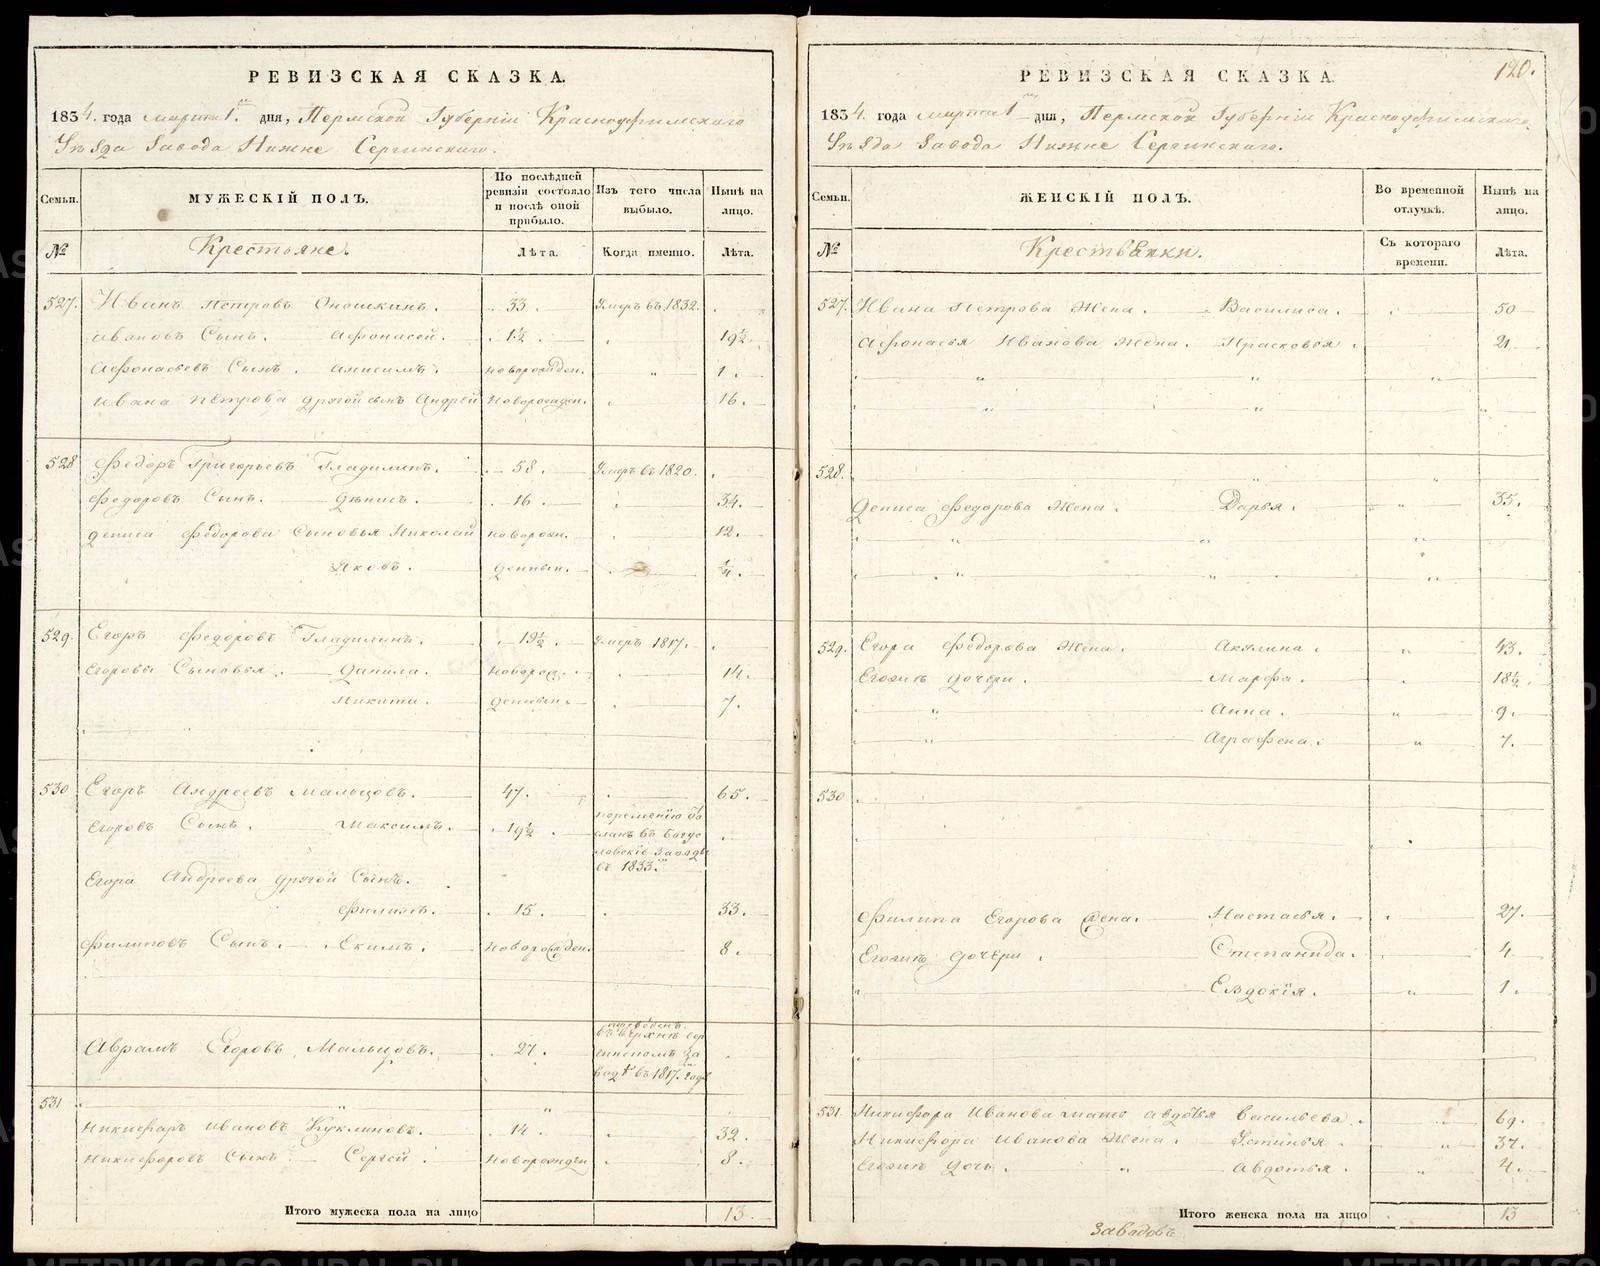 РЕВИЗСКАЯ СКАЗКА.
1834. года марта 1. дня, Пермской Губернiи Красноуфимскаго
Уѣзда Завода Нижне Сергинскаго.
Семьи.
МУЖЕСКIЙ ПОЛЪ.
По послѣдней ревизiи состояло и послѣ оной прибыло.
Изъ того числа выбыло.
Нынѣ на лицо.
№
Крестьяне.
Лѣта.
Когда именно.
Лѣта.
527. Иванъ Петровъ Оношкинъ. 33 Умеръ въ 1832.
Ивановъ Сынъ. Афонасей. 1½ 19½
Афонасьевъ Сынъ. Анисимъ. новорожден. " 1.
Ивана Петрова другой сынъ Андрей Новорожден. 16.
528 Федоръ Григорьевъ Гладилинъ. 58. Умеръ въ 1820.
Федоровъ Сынъ. Денисъ. 16. 34.
Дениса Федорова Сыновья Николай новорож. 12.
Яковъ. денныи. ¼.
529. Егоръ Федоровъ Гладилинъ. 19½. Умеръ 1817.
Егоровы Сыновья. Данила. Новорож. 14.
Никита. денныи. 7.
530 Егоръ Андреевъ Мальцовъ. 47. 65.
Егоровъ Сынъ. Максимъ. 19½.
сланъ въ Богус
ловскiе Заводы
въ 1833.
Егора Андреева другой Сынъ.
Филипъ. 15. 33.
Филиповъ Сынъ. Екимъ. Новорожден. 8.
Аврамъ Егоровъ Мальцовъ. 27.
переведенъ
въ верхне сер
гинскомъ за
водѣ въ 1817. годѣ
531 " "
Никифоръ Ивановъ Куклиновъ. 14. 32.
Никифоровъ Сынъ Сергей. Новорожден 8.
Итого мужеска пола на лицо 13.
120.
РЕВИЗСКАЯ СКАЗКА.
1834. года марта 1 дня, Пермской Губернiи Красноуфимскаго
Уѣзда Завода Нижне Сергинскаго.
Семьи.
ЖЕНСКIЙ ПОЛЪ.
Во временной отлучкѣ.
Нынѣ на лицо.
№
Крестьянки.
Съ котораго времени.
Лѣта.
527. Ивана Петрова Жена. Василиса. 50
Афонасья Иванова Жена. Прасковья. 21
" " "
" " "
528.
Дениса Федорова Жена. Дарья. " 35.
" " "
" " "
529. Егора Федорова Жена. Акулина. " 43.
Егоровы дочери. Марфа. 18½.
" Анна. " 9.
" Аграфена. " 7.
530
Филипа Егорова Жена. Настасья. 27.
дочери. Степанида. 4
Евдокiя. " 1.
531. Никифора Иванова мать Авдотья Васильева. 69.
Никифора Иванова Жена. Устинья. " 37.
дочь. " Авдотья. " 4.
Итого женска пола на лицо 13
Заводовъ